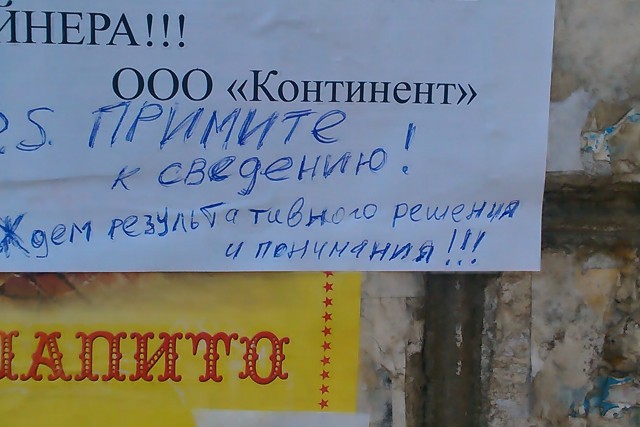 ЙНЕРА!!!
ООО «Континент»
P.S. ПРИМИТЕ
к сведению!
Ждем результативного решения
и понимания!!!
ШАПИТО